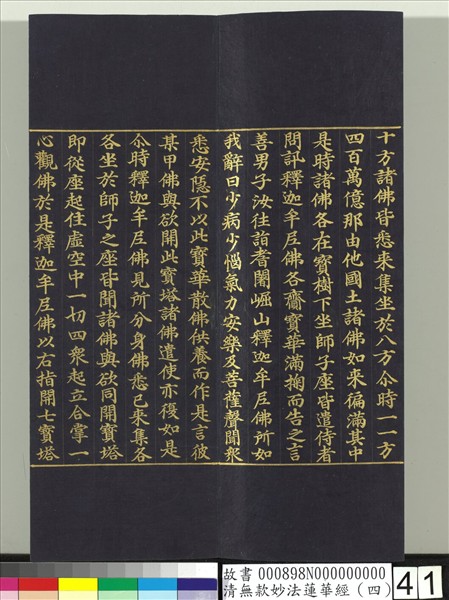 十方諸佛皆悉來集坐於八方尒時一一方
四百萬億那由他國土諸佛如來徧滿其中
是時諸佛各在寶樹下坐師子座皆遣侍者
問訊釋迦牟尼佛各齎寶華滿掬而告之言
善男子汝往詣耆闍崛山釋迦牟尼佛所如
我辭曰少病少惱氣力安樂及菩薩聲聞衆
悉安隱不以此寶華散佛供養而作是言彼
某甲佛與欲開此寶塔諸佛遣使亦復如是
尒時釋迦牟尼佛見所分身佛悉已來集各
各坐於師子之座皆聞諸佛與欲同開寶塔
即從座起住虛空中一切四衆起立合掌一
心觀佛於是釋迦牟尼佛以右指開七寶塔
故書 000898N000000000
清無款妙法蓮華經（四）
41